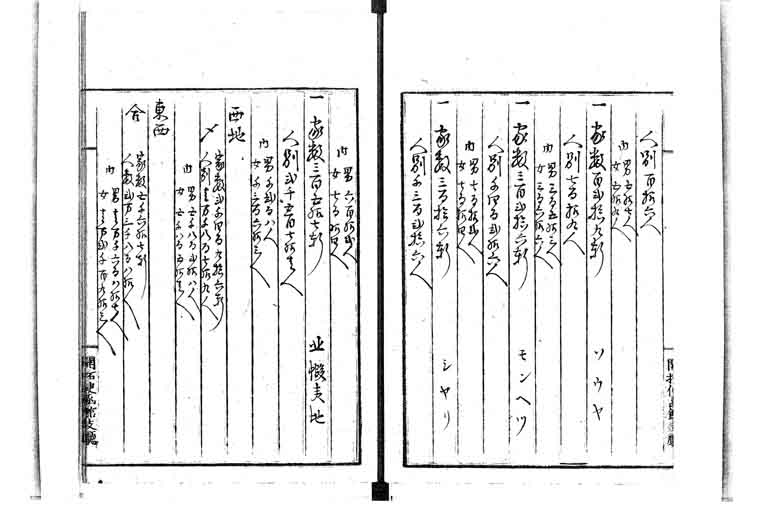 人別百拾六人
内
男五拾七人
女五拾九人
一 家数百弐拾九軒 ソウヤ
人別七百拾九人
内
男三百五拾三人
女三百六拾六人
一 家数三百弐拾六軒 モンヘツ
人別千四百弐拾六人
内
男七百拾弐人
女七百拾四人
一 家数三百拾六軒 シヤリ
人別千三百弐拾六人
内
男六百拾弐人
女七百拾四人
一 家数三百五拾七軒 夷地
人別弐千五百七拾壱人
内
男千弐百八人
女千三百六拾三人
西地
〆
家数弐千四百九拾六軒
人別壱万千八百七拾九人
内
男五千八百弐拾八人
女
東西
合
家数五千六拾七軒
人数弐万三千八百八拾人
内
男壱万千六百八拾七人
女壱万弐千百九拾三人